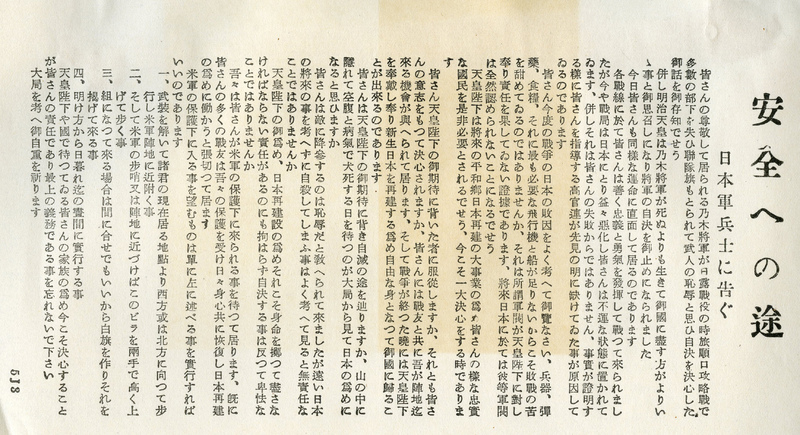 安全への途
日本軍兵士に告ぐ
皆さんの尊敬して居られる乃木將軍が日露戰役の時旅順口攻略戰で
多數の部下を失ひ聯隊旗もとられて武人の恥辱と思ひ自決を決心した
御話を御存知でせう
併し明治天皇は乃木將軍が死ぬよりも生きて御國に盡す方がよりい
ゝ事と御思召しになり將軍の自決を御止めになられました
今日皆さんも同樣な運命に直面して居るのであります
各戰線に於て皆さんは善く忠義と勇氣を發揮して戰つて來られまし
たが今や戰局は日本により益々惡化し皆さんは不運な狀態に置かれて
ゐます、併しそれは皆さんの失敗からではありません、事實が證明す
る樣に皆さんを指導する高官連が先見の明に缺けてゐた事が原因して
ゐるのであります
皆さん今度の戰爭の日本の敗因をよく考へて御覽なさい、兵器、彈
藥、食糧、それに最も必要な飛行機と船が足りないからこそ敗戰の苦
を甜めてゐるのではありませんか、それは所謂軍閥が天皇陛下に對し
奉り責任を果してゐない證據であります、將來日本に於ては彼等軍閥
は全然認められないことになるでせう
天皇陛下は將來の平和鄕日本再建の大事業の爲め皆さんの樣な忠實
な國民を是非必要とされるでせう、今こそ一大決心をする時でありま
す
皆さん天皇陛下の御期待に背いた者に服從しますか、それとも皆さ
んの意志をもつて決心されますか、皆さんには戰友と共に吾が陣地迄
來る機會が與へられて居ります、そして戰爭が終つた曉には天皇陛下
を奉戴し奉り新生日本を再建する爲め自由な身となつて御國に歸るこ
とが出來るのであります
皆さんは天皇陛下の御期待に背き自滅の途を辿りますか、山の中に
隱れて空腹と病氣で犬死する日を待つのが大局から見て日本の爲めに
なると思ひますか
皆さんは敵に降參するのは恥辱だと敎へられて來ましたが遠い日本
の將來の事を考へずに自殺してしまふ事はよく考へて見ると無責任な
ことではありませんか
天皇陛下の御爲め、日本再建設の爲めそれこそ身命を擲つて盡さな
ければならない責任があるのにも拘はらず自決する事は反つて卑怯な
ことではありませんか
吾々は皆さんが米軍の保護下に來られる事を待つて居ります、旣に
皆さんの多くの戰友は吾々の保護を受け日々身心共に恢復し日本再建
の爲めに働かうと張切つて居ます
米軍の保護下に入る事を望むものは單に左に述べる事を實行すれば
いいのであります
一、武裝を解いて諸君の現在居る地點より西方或は北方に向つて步
行し米軍陣地に近附く事
二、そして米軍の步哨又は陣地に近づけばこのビラを兩手で高く上
げて步く事
三、組になつて來る場合は間に合せでもいいから白旗を作りそれを
揭げて來る事
四、明け方から日暮れ迄の晝間に實行する事
天皇陛下や國で待つてゐる皆さんの家族の爲め今こそ決心すること
が皆さんの責任であり最上の義務である事を忘れないで下さい
大局を考へ御自重を祈ります
5J8